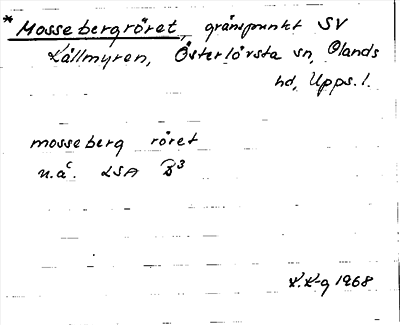 * Mossebergröret, gränspunkt SV
Källmyren, Österlövsta sn, Olands
hd, Upps. l.
mosseberg röret
u.å. LSA B3
K.K-g 1968